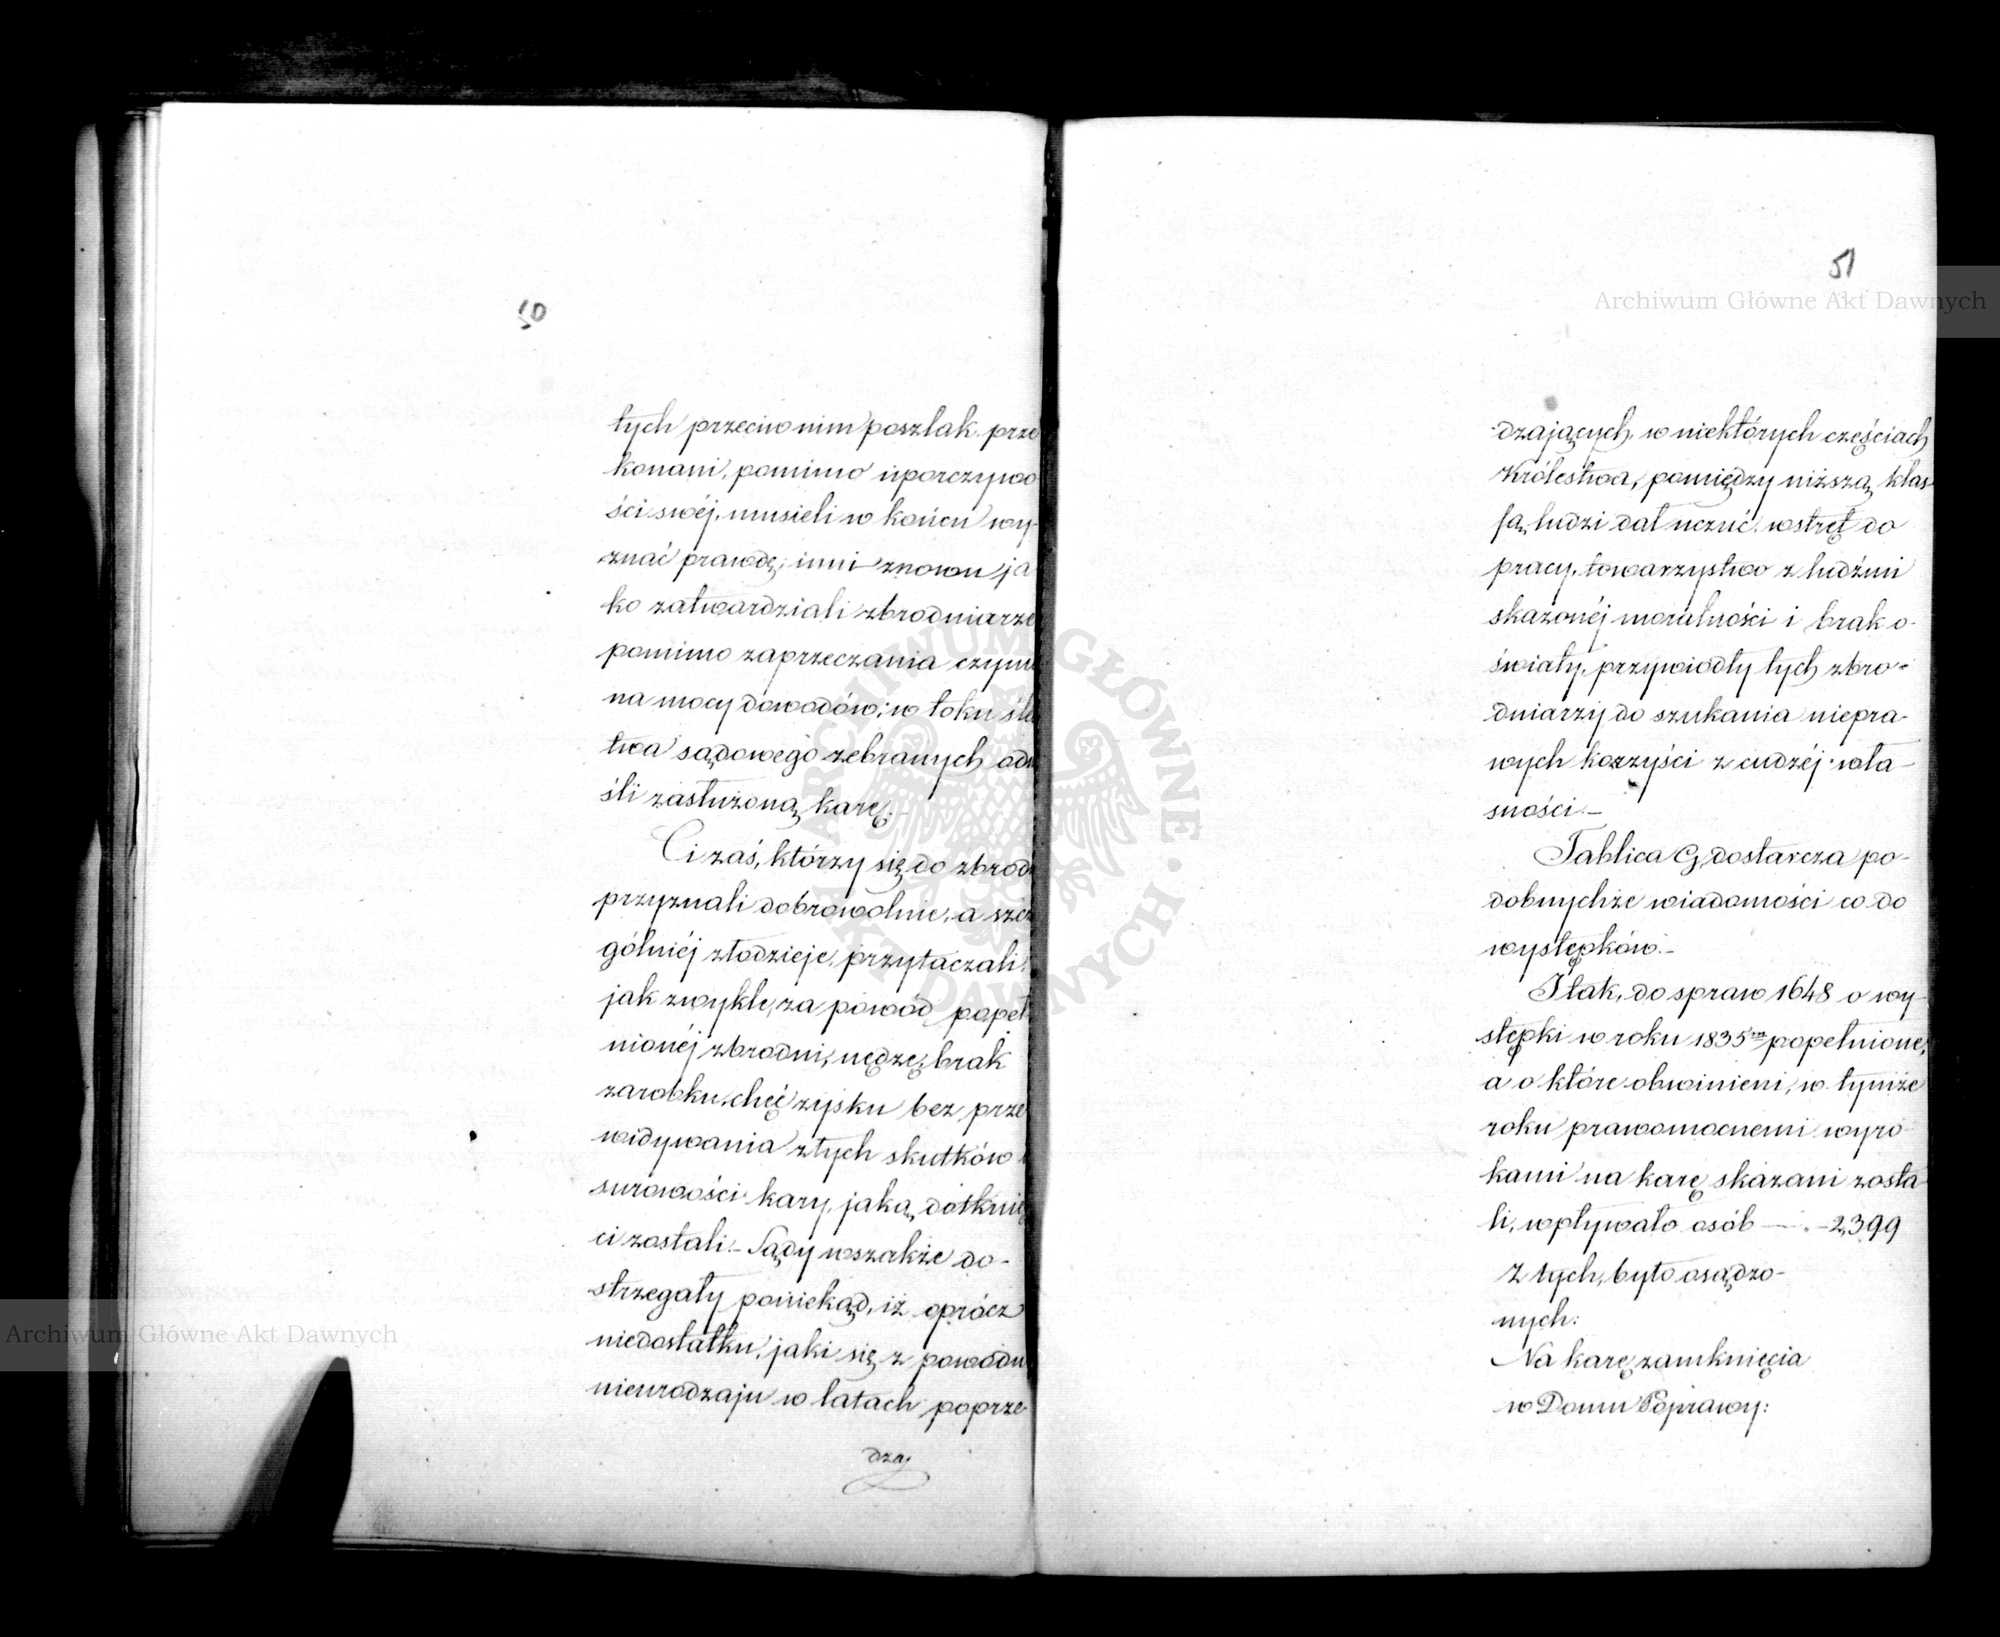 50
tych przeciw nim poszlak prze
konani, pomimo uporczywo
ści swéj, musieli w końcu wy-
znać prawdę; inni znowu ja
ko zatwardziali zbrodniarze
pomimo zaprzeczania czynu
na mocy dowodów; w toku śle
twa sądowego zebranych odn
śli zasłużoną karę.-
Ci zaś, którzy się do zbrod
przyznali dobrowolnie, a szcz
gólniéj złodzieje, przytaczali,
jak zwykle, za powód popeł
nionéj zbrodni, nędzę, brak
zarobku, chęć zysku bez prze
widywania złych skutków
surowości kary, jaką dotknię
ci zostali.- Sądy wszakże do-
strzegały poniekąd, iż oprócz
niedostatku, jaki się z powodu
nieurodzaju w latach poprze-
dzaj
51
dzających, w niektórych częściach
Królestwa, pomiędzy niższą klas
są ludzi dał uczuć, wstręt do
pracy, towarzystwo z ludźmi
skażonéj moralności i brak o-
światy, przywiodły tych zbro-
dniarzy do szukania niepra-
wych korzyści z cudzéj wła-
sności.-
Tablica G, dostarcza po-
dobnychże wiadomości co do
występków.-
I tak, do spraw 1648 o wy-
stępki w roku 1835ym popełnione,
a o które obwinieni, w tymże
roku prawomocnemi wyro
kami na karę skazani zosta
li, wpływało osób - - 2,399
Z tych, było osądzo-
nych:
Na karę zamknięcia
w Domu Poprawy:
Archiwum Główne Akt Dawnych
Archiwum Główne Akt Dawnych
ARCHIWUM GŁÓWNE · AKT DAWNYCH ·